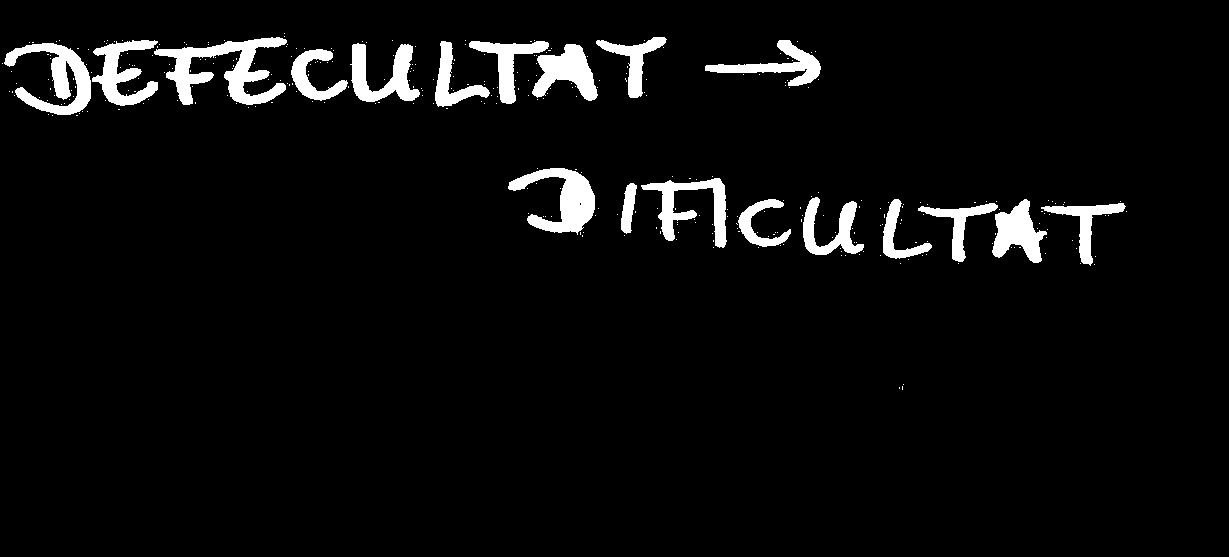 DEFECULTAT →
DIFICULTAT